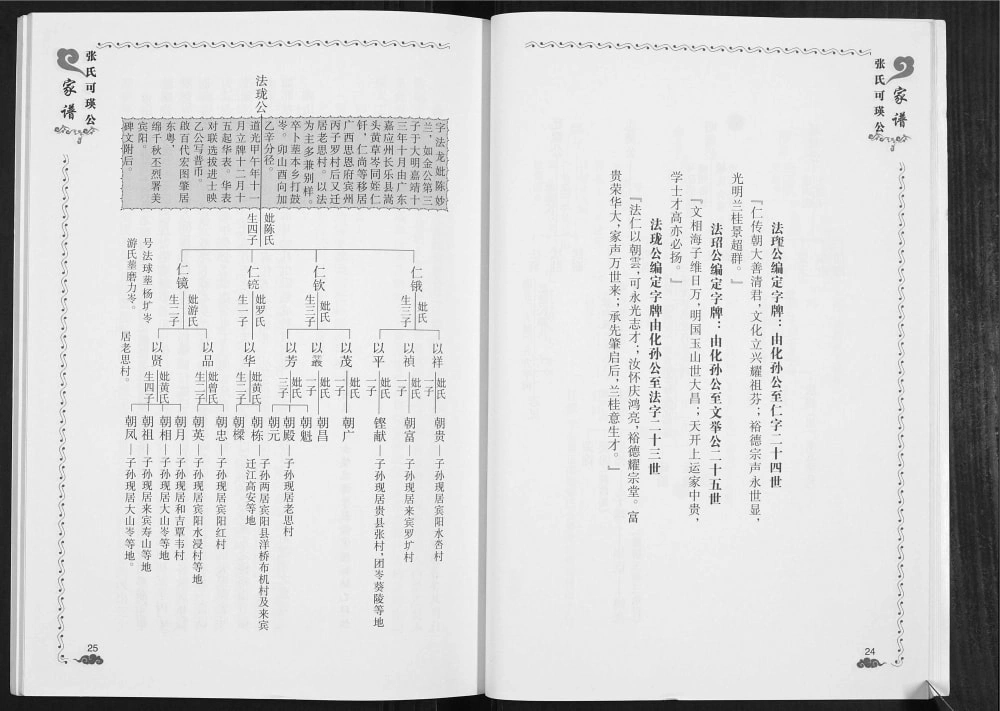 张氏可瑛公
家谱
法瓏公编定字牌：由化孙公至仁字二十四世
『仁传朝大善清君，文化立兴耀祖芬；裕德宗声永世显，
光明兰桂景超群。』
法玿公编定字牌：由化孙公至文举公二十五世
『文相海子维日万，明国玉山世大昌；天开上运家中贵，
学士才高亦必扬。』
法珑公编定字牌由化孙公至法字二十三世
『法仁以朝雲，可永光志才；汝怀庆鸿亮，裕德耀宗堂。富
贵荣华大，家声万世来；承先肇启后，兰桂意生才。』
24
张氏可瑛公
家谱
法珑公
字法龙妣陈妙
兰，如金公第三
子于大明嘉靖十
三年十月由广东
嘉应州长乐县嵩
头黄草岑同姪仁
钎，仁尚等移居
广西思恩府宾州
丙子罗村后又迁
居老思村。以法
为主多兼别样。
卒卜塟本乡打鼓
岑。卯山酉向加
乙辛分径。
道光甲午年十一
月立牌十二月十
五起华表。华表
对联选拔进士映
乙公写晋币。
啟百代宏图肇居
东粤，
绵千秋丕烈署美
宾阳。
碑文附后。
妣陈氏
生四子
仁锇
妣氏
生三子
仁钦
妣氏
生三子
仁铙
妣罗氏
生一子
仁镜
妣游氏
生二子
号法球塟杨圹岑
游氏塟磨力岑。
以祥
妣氏
一子
以禎
妣氏
一子
以平
妣氏
一子
以茂
妣氏
一子
以叢
妣氏
一子
以芳
妣氏
三子
以华
妣黄氏
生二子
以品
妣曾氏
生二子
以贤
妣黄氏
生四子
居老思村。
朝贵—子孙现居宾阳水沓村
朝富—子孙现居来宾罗圹村
铿献—子孙现居贵县张村，团岺葵陵等地
朝广
朝昌
朝魁
朝殿—子孙现居老思村
朝元
朝栋—子孙两居宾阳县洋桥布机村及来宾
迁江高安等地
朝樑
朝忠—子孙现居宾阳红村
朝英—子孙现居宾阳水浸村等地
朝月—子孙现居和吉覃韦村
朝相—子孙现居大山岺等地
朝祖—子孙现居来宾寿山等地
朝凤—子孙现居大山岺等地。
25